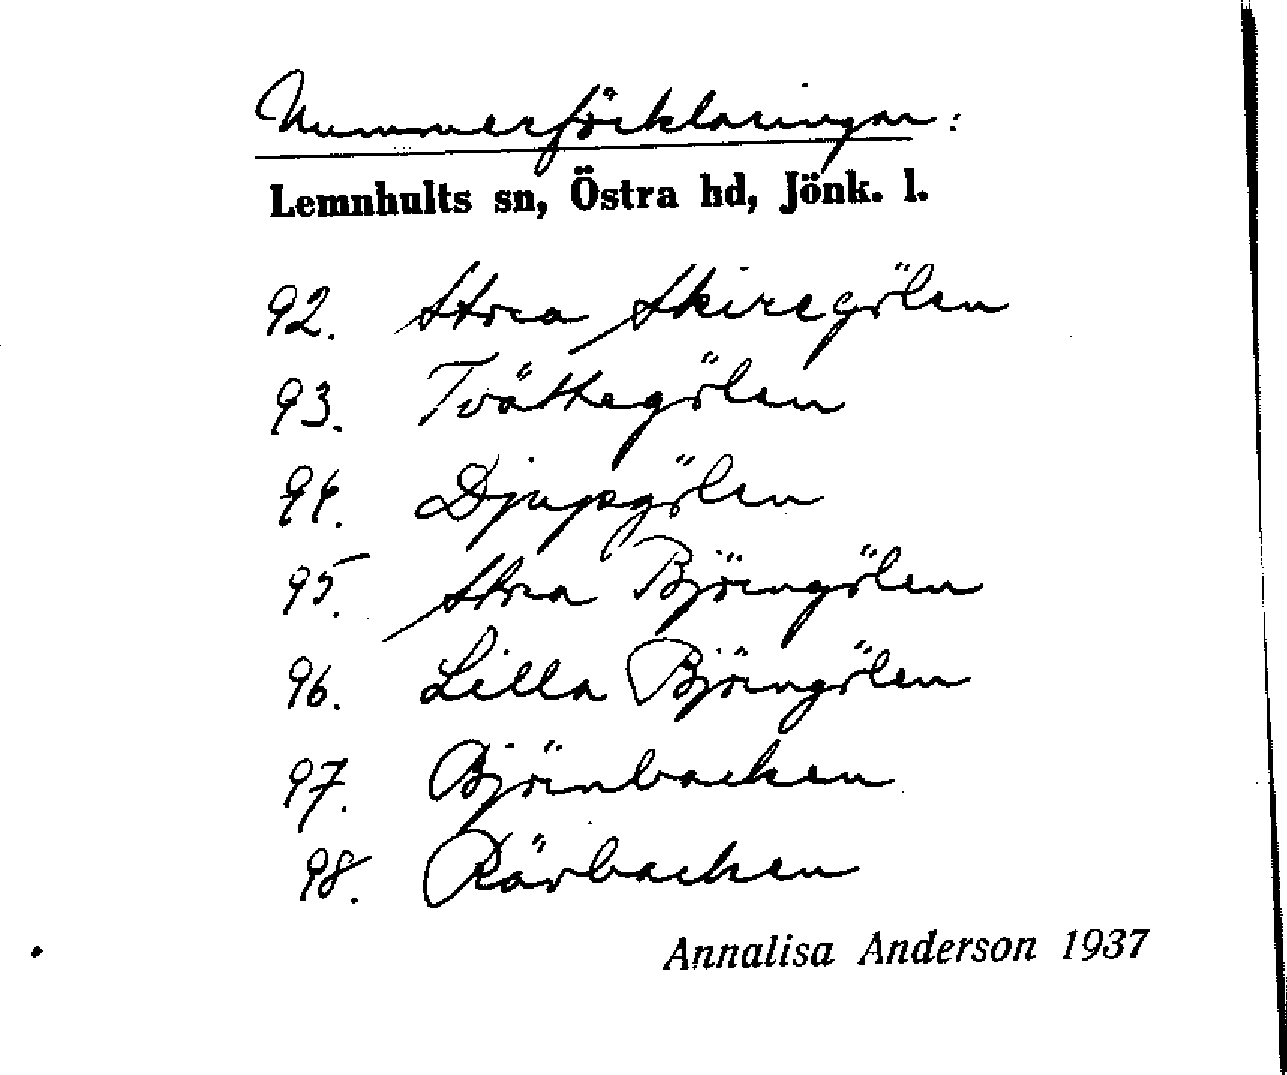 Nummerförklaringar:
Lemnhults sn, Östra hd, Jönk. l.
92. Stora Skiregölen
93. Tvättegölen
94. Djupgölen
95. Stora Björngölen
96. Lilla Björngölen
97. Björnbacken
98. Rävbacken
Annalisa Anderson 1937